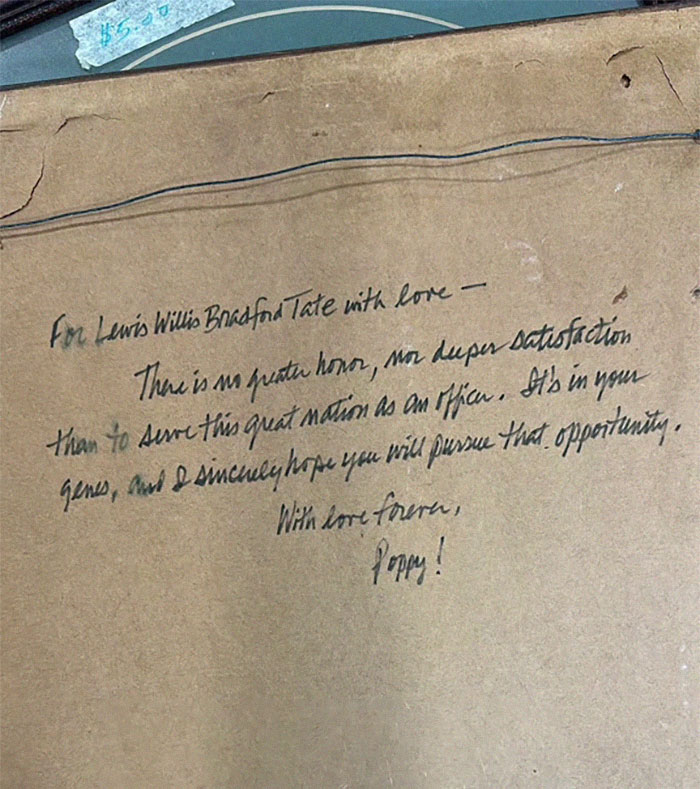 $5.00
For Lewis Willis Bradford Tate with love —
There is no greater honor, nor deeper satisfaction
than to serve this great nation as an officer. It's in your
genes, and I sincerely hope you will pursue that opportunity.
With love forever,
Poppy!